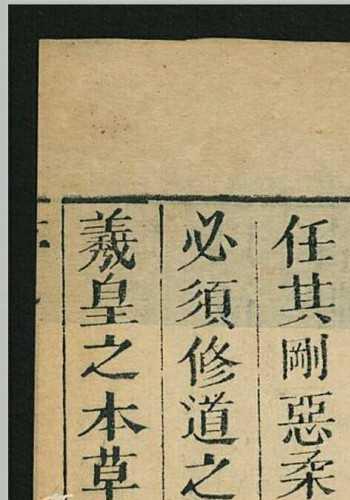 任其剛惡柔
必須修道之
羲皇之本草